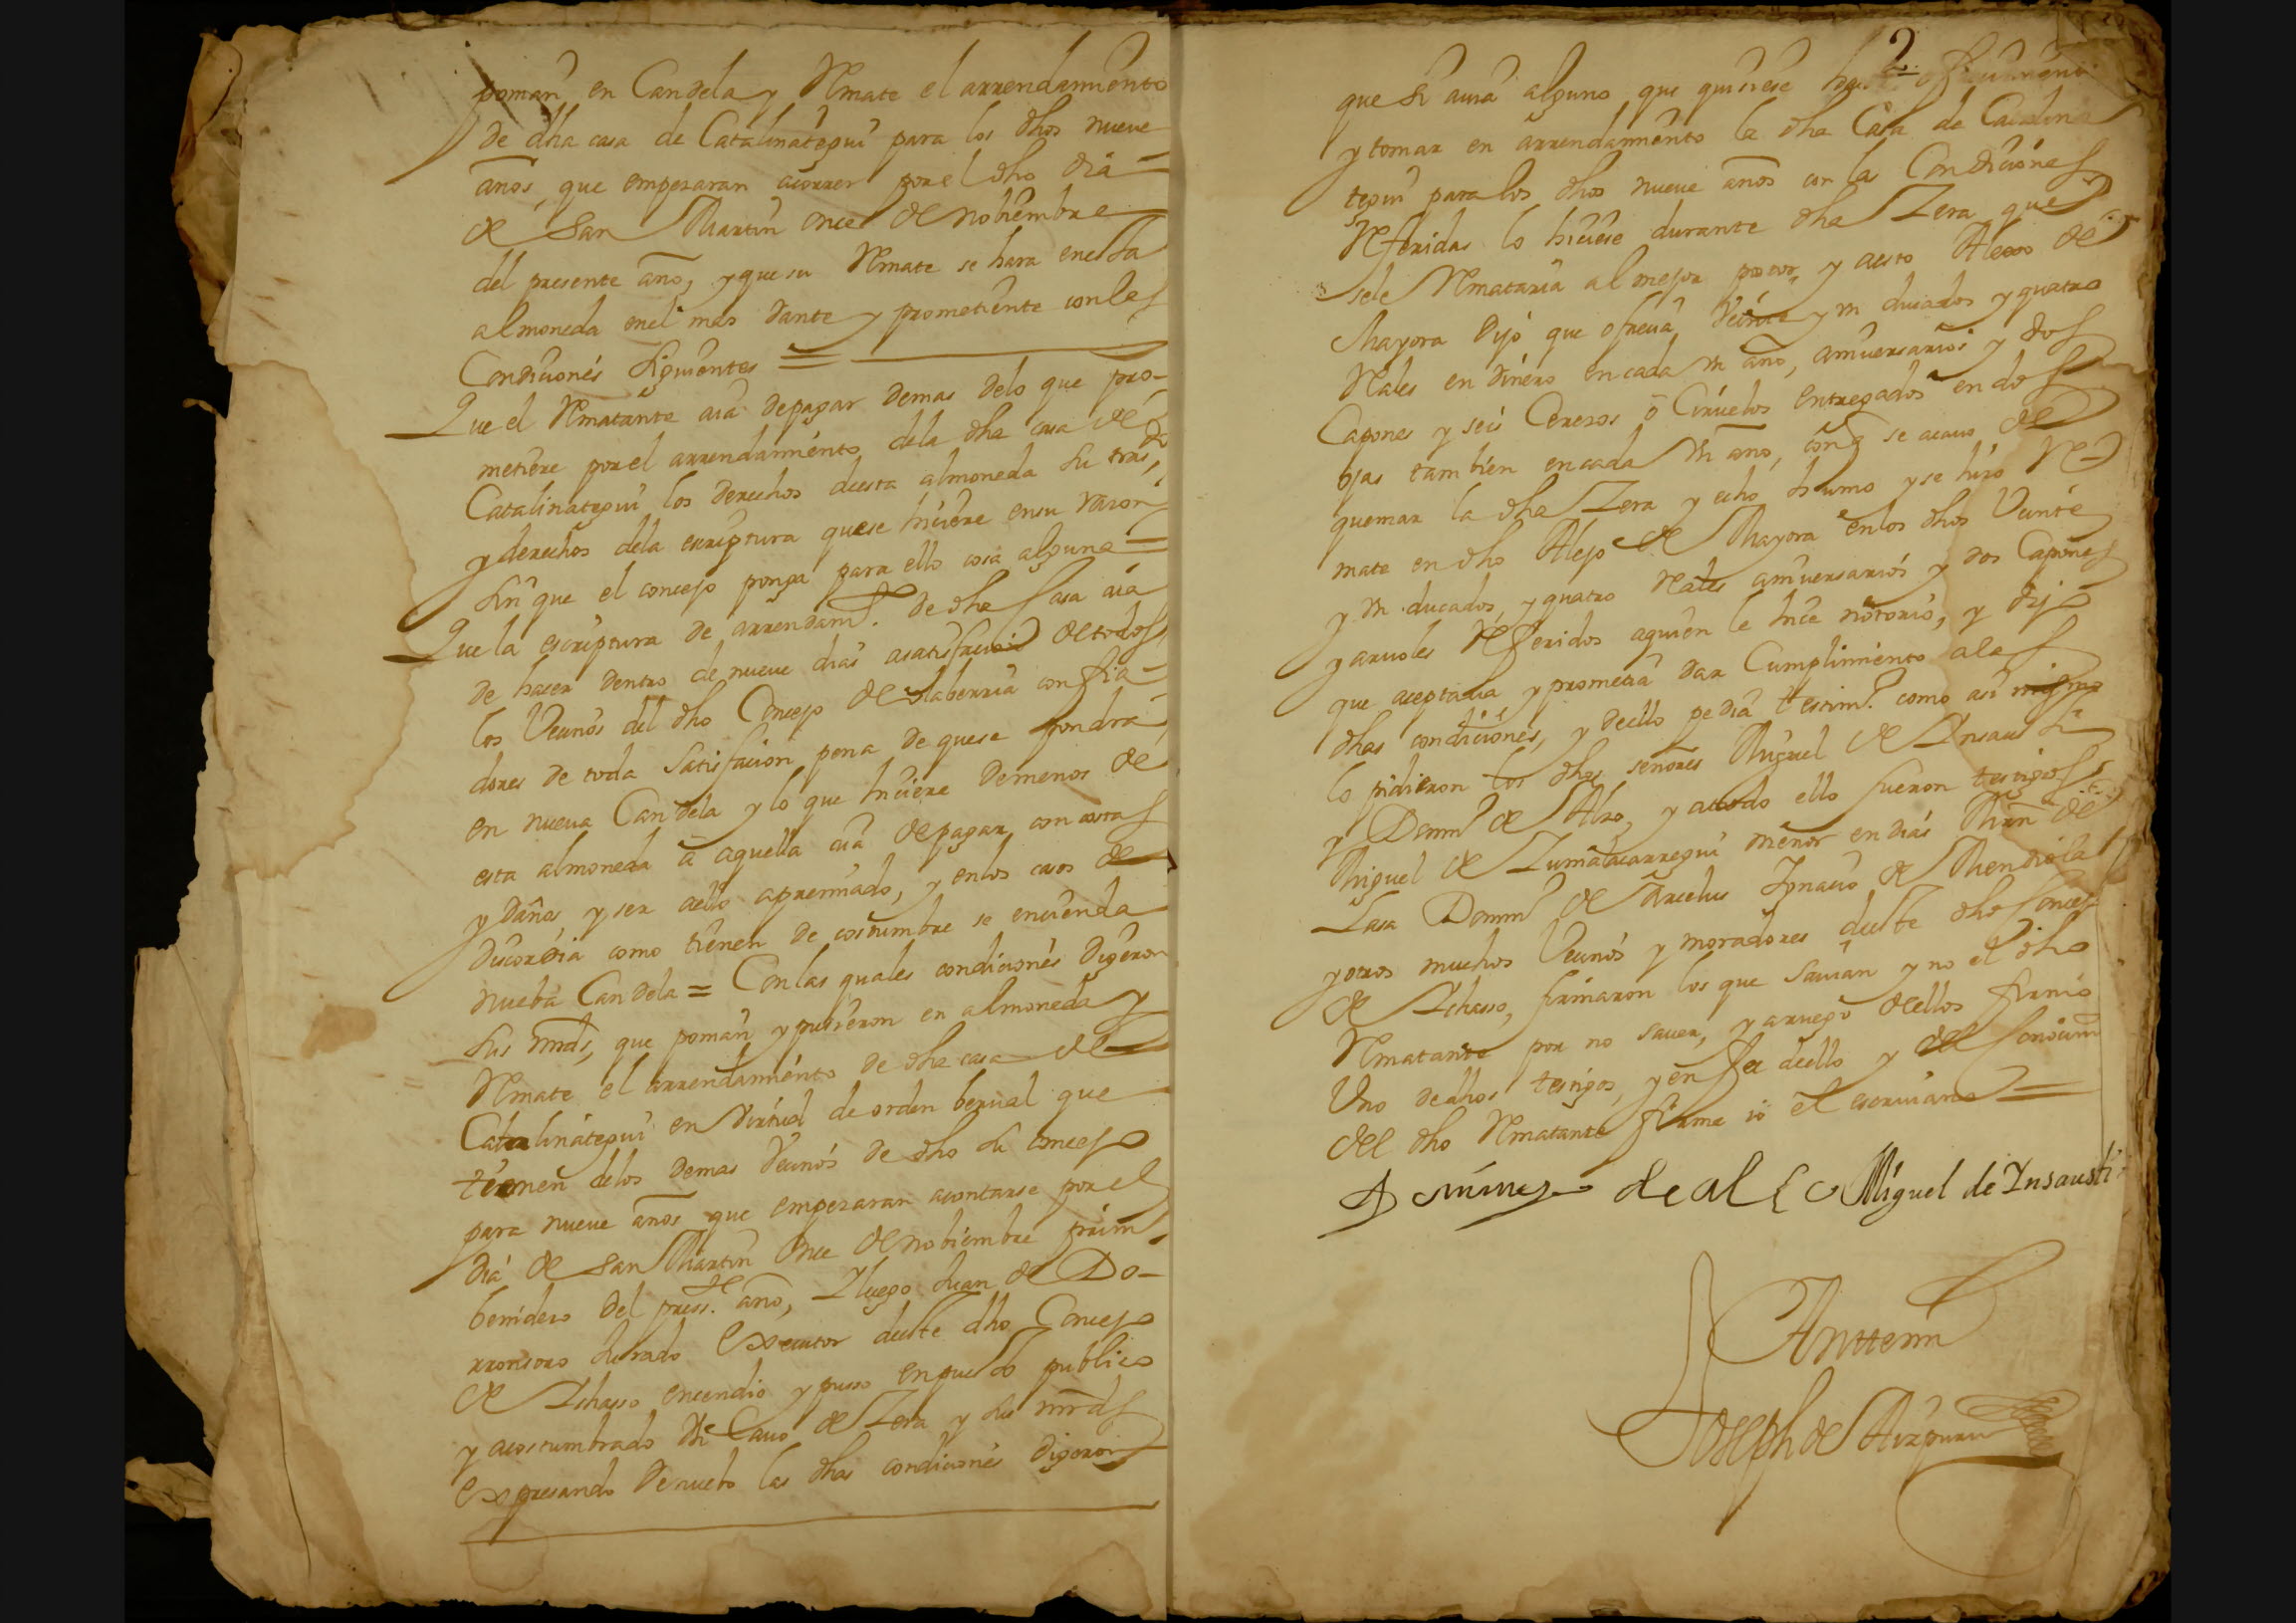 ponian en Candela y Remate el arrendamiento
de dha casa de Catalinategui para los dhos nueve
años, que empezaran acorrer por el dho dia
de San Martin once de nobiembre
del presente año, y que su Remate se hara en esta
almoneda en el mas dante y prometiente con las
Condiciones siguientes =
Que el Rematante aia de pagar demas delo que pro-
metiere por el arrendamiento dela dha casa de
Catalinategui los derechos desta almoneda su tras,
y derechos dela escriptura que se hiciere en su raçon
sin que el concejo ponga para ello cosa alguna =
Que la escriptura de arrendam.to de dha Casa aia
de hacer dentro de nueve dias a satisfacion de todos
los Vecinos del dho Concejo de olaberria con fia-
dores de toda satisfacion pena de que se pondra
en nueva Candela y lo que hiciere demenos de
esta almoneda â aquella aia de pagar con costas
y daños, y ser aello apremiado, y enlos casos de
discordia como tienen de costumbre se encienda
nueba Candela = Con las quales condiciones digeron
sus mrds, que ponian y pusieron en almoneda y
Remate el arrendamiento de dha casa de
Catalinategui en virtud de orden berual que
tienen delos demas Vecinos de dho su concejo
para nueve años que empezaran acontarse por el
dia de San Martin Once de nobiembre prim.
benidero del press.te año, Y luego Juan de Do-
rronsoro Jurado Executor deeste dho Concejo
de Ichasso encendio y puso en puesto publico
y acostumbrado Un Cauo de Zera y sus mrds
Expresando denuebo las dhas condiciones digeron
2
que si auia alguno que quisiese hacer ofrecimiento
y tomar en arrendamiento la dha Casa de Catalina
tegui para los dhos nueve años con las Condiciones
Referidas lo hiciese durante dha Zera que
sele Remataria al mejor postor, y aesto Alexo de
Mayora Dijo que ofrecia Veinte y un ducados y quatro
Reales en dinero en cada un año, aniversarios y dos
Capones y seis Cerezos ô Ciruelos entregados en dos
ojas tambien en cada un año, con q se acauo de
quemar la dha Zera y echo humo y se hizo Re-
mate en dho Alejo de Mayora en los dhos Veinte
y un ducados, y quatro Reales aniversarios y dos Capones
y arvoles Referidos aquien le hice notorio, y dijo
que aceptaba y prometia dar Cumplimiento alas
dhas condiciones, y deello pedia testim.o como asi mismo
lo pidieron los dhos señores Miguel de Insausti
y Domin.o de Alzo, y atodo ello fueron testigos
Miguel de Zumalacarregui menor en dias Min de
Lasa Domin.o de Arcelus Ignacio de Mendiola
y otros muchos Vecinos y moradores deeste dho Concejo
de Ichasso, firmaron los que savian y no el dho
Rematante por no saver, y aruego dellos firmo
Uno de dhos testigos, y en fee deello y del conocim.
del dho Rematante firme io el escriuano =
Domingo de alço Miguel de Insausti
Antte mi
Joseph de Aizpuru